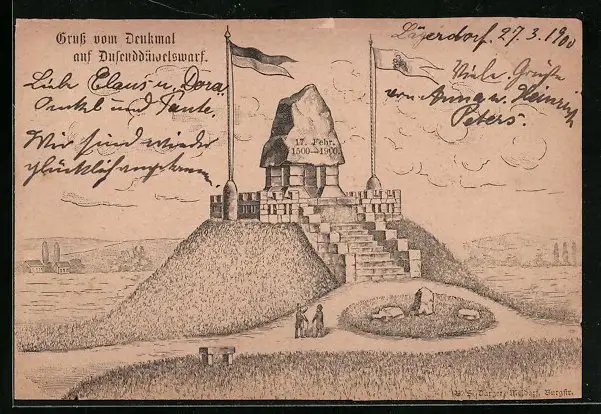 Gruß vom Denkmal
auf Dusenddüwelswarf.
Lägerdorf. 27.3.1900
Liebe Claus u. Dora
Onkel und Tante.
Wir sind wieder
glücklich angekommen.
Viele Grüße
von Anna u. Heinrich
Peters.
17. Febr.
1500–1900
Meldorf, Burgstr.